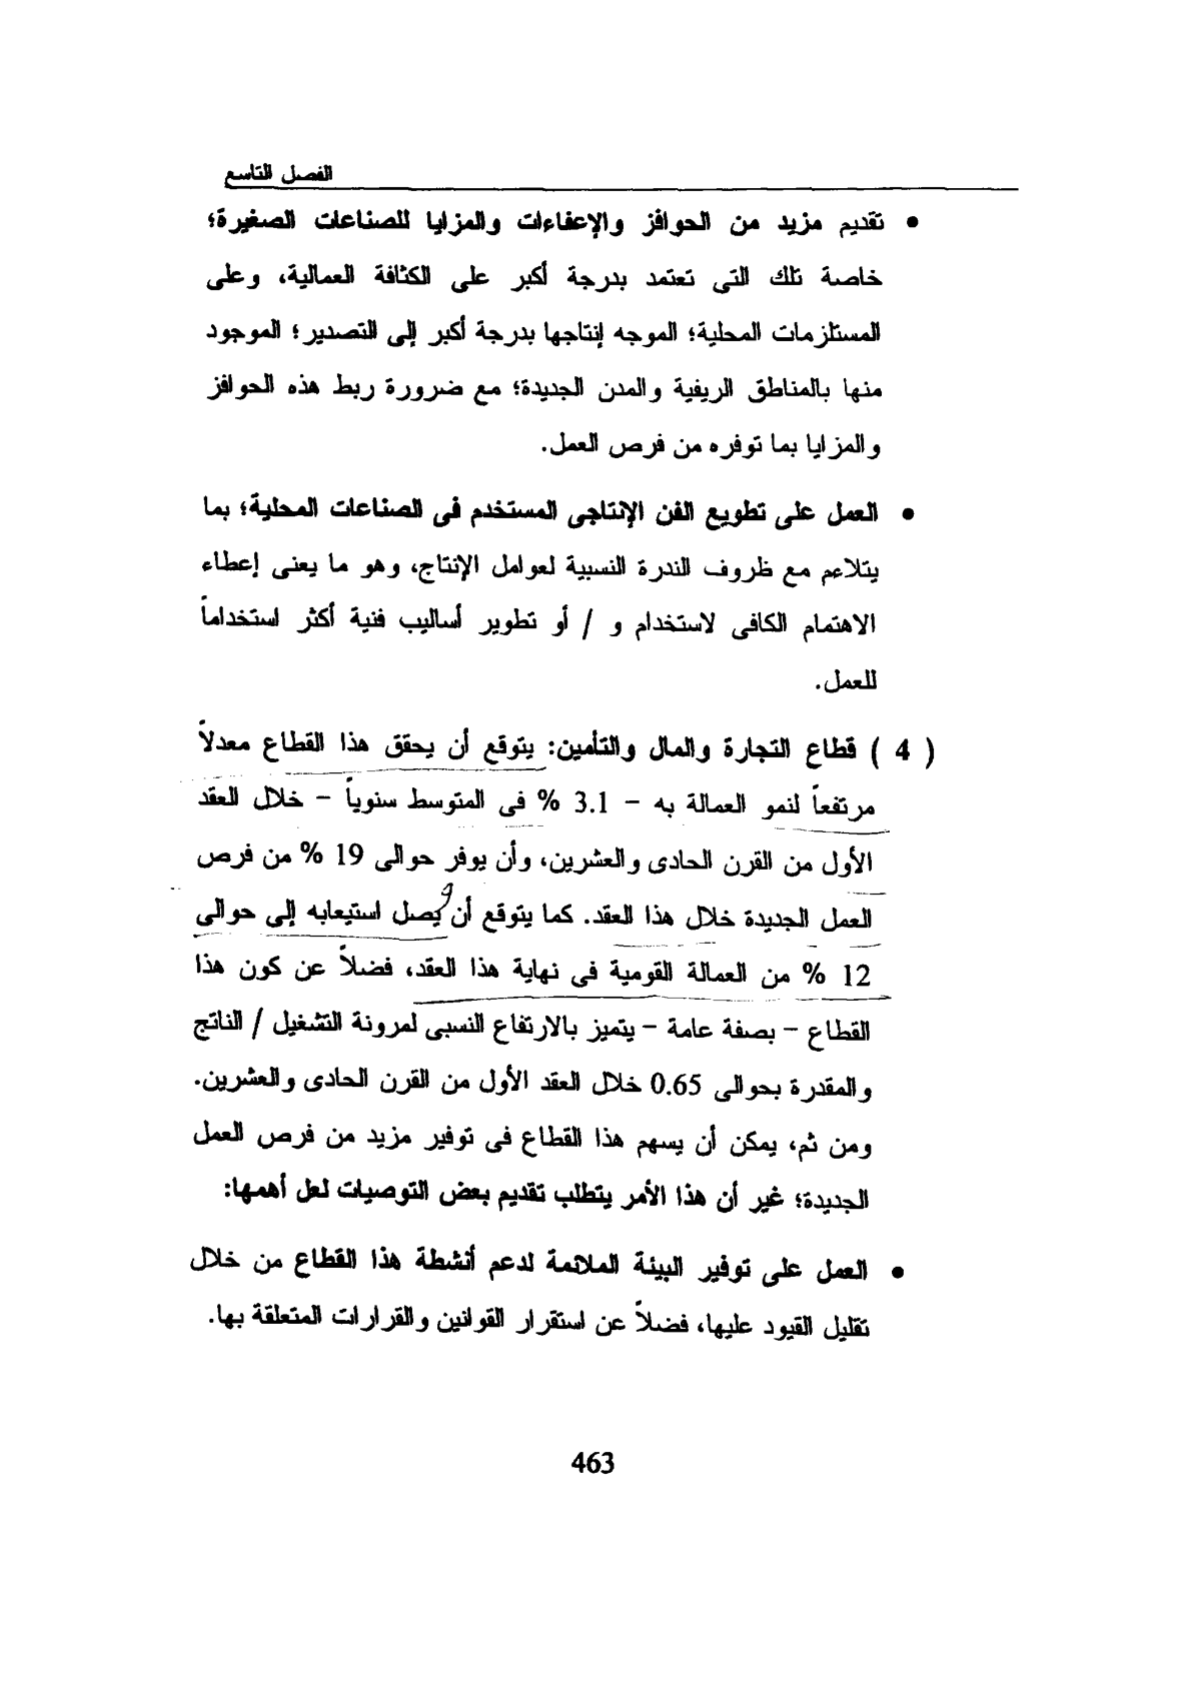 الفصل التاسع
• تقديم مزيد من الحوافز والإعفاءات والمزايا للصناعات الصغيرة؛
خاصة تلك التى تعتمد بدرجة أكبر على الكثافة العمالية، وعلى
المستلزمات المحلية؛ الموجه إنتاجها بدرجة أكبر إلى التصدير؛ الموجود
منها بالمناطق الريفية والمدن الجديدة؛ مع ضرورة ربط هذه الحوافز
والمزايا بما توفره من فرص العمل.
• العمل على تطويع الفن الإنتاجى المستخدم فى الصناعات المحلية؛ بما
يتلاءم مع ظروف الندرة النسبية لعوامل الإنتاج، وهو ما يعنى إعطاء
الاهتمام الكافى لاستخدام و / أو تطوير أساليب فنية أكثر استخداماً
للعمل.
( 4 ) قطاع التجارة والمال والتأمين: يتوقع أن يحقق هذا القطاع معدلاً
مرتفعاً لنمو العمالة به – 3.1 % فى المتوسط سنوياً – خلال العقد
الأول من القرن الحادى والعشرين، وأن يوفر حوالى 19 % من فرص
العمل الجديدة خلال هذا العقد. كما يتوقع أن يصل استيعابه إلى حوالى
12 % من العمالة القومية فى نهاية هذا العقد، فضلاً عن كون هذا
القطاع – بصفة عامة – يتميز بالارتفاع النسبى لمرونة التشغيل / الناتج
والمقدرة بحوالى 0.65 خلال العقد الأول من القرن الحادى والعشرين.
ومن ثم، يمكن أن يسهم هذا القطاع فى توفير مزيد من فرص العمل
الجديدة؛ غير أن هذا الأمر يتطلب تقديم بعض التوصيات لعل أهمها:
• العمل على توفير البيئة الملائمة لدعم أنشطة هذا القطاع من خلال
تقليل القيود عليها، فضلاً عن استقرار القوانين والقرارات المتعلقة بها.
463